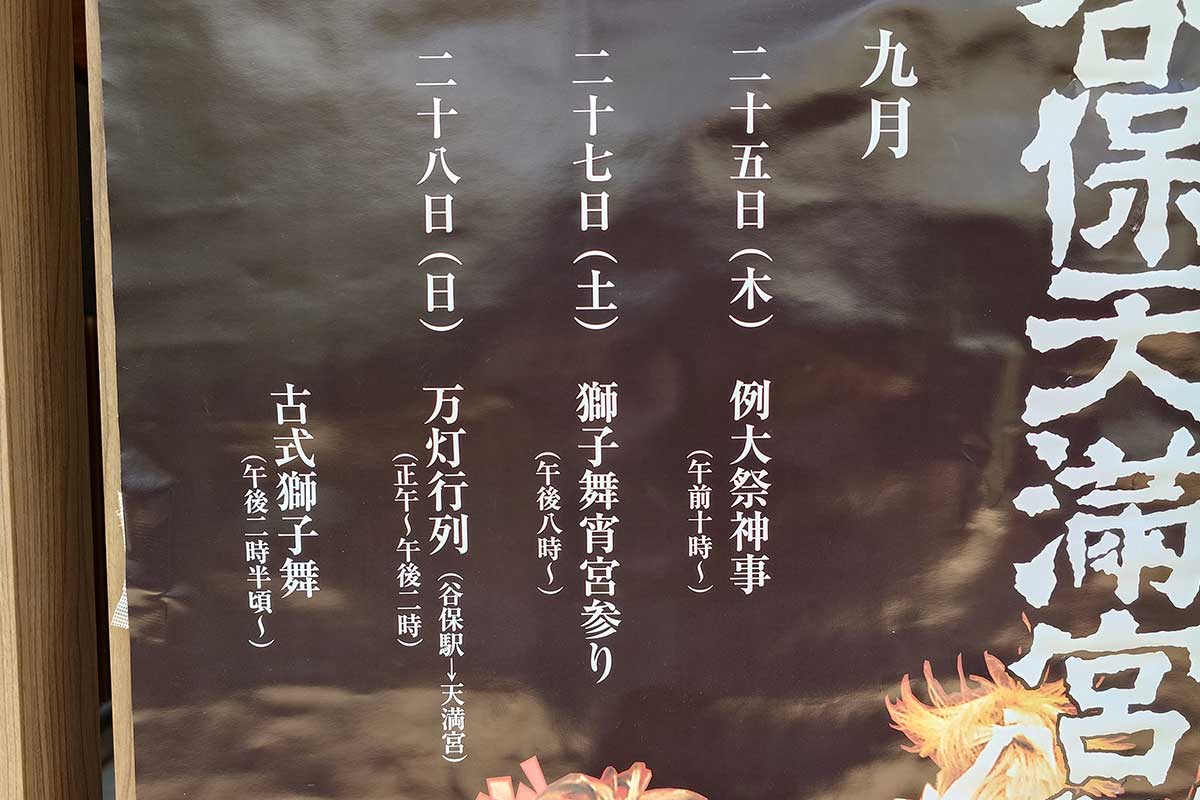 谷保天満宮
九月
二十五日(木) 例大祭神事
(午前十時~)
二十七日(土) 獅子舞宵宮参り
(午後八時~)
二十八日(日) 万灯行列(谷保駅→天満宮)
(正午~午後二時)
古式獅子舞
(午後二時半頃~)